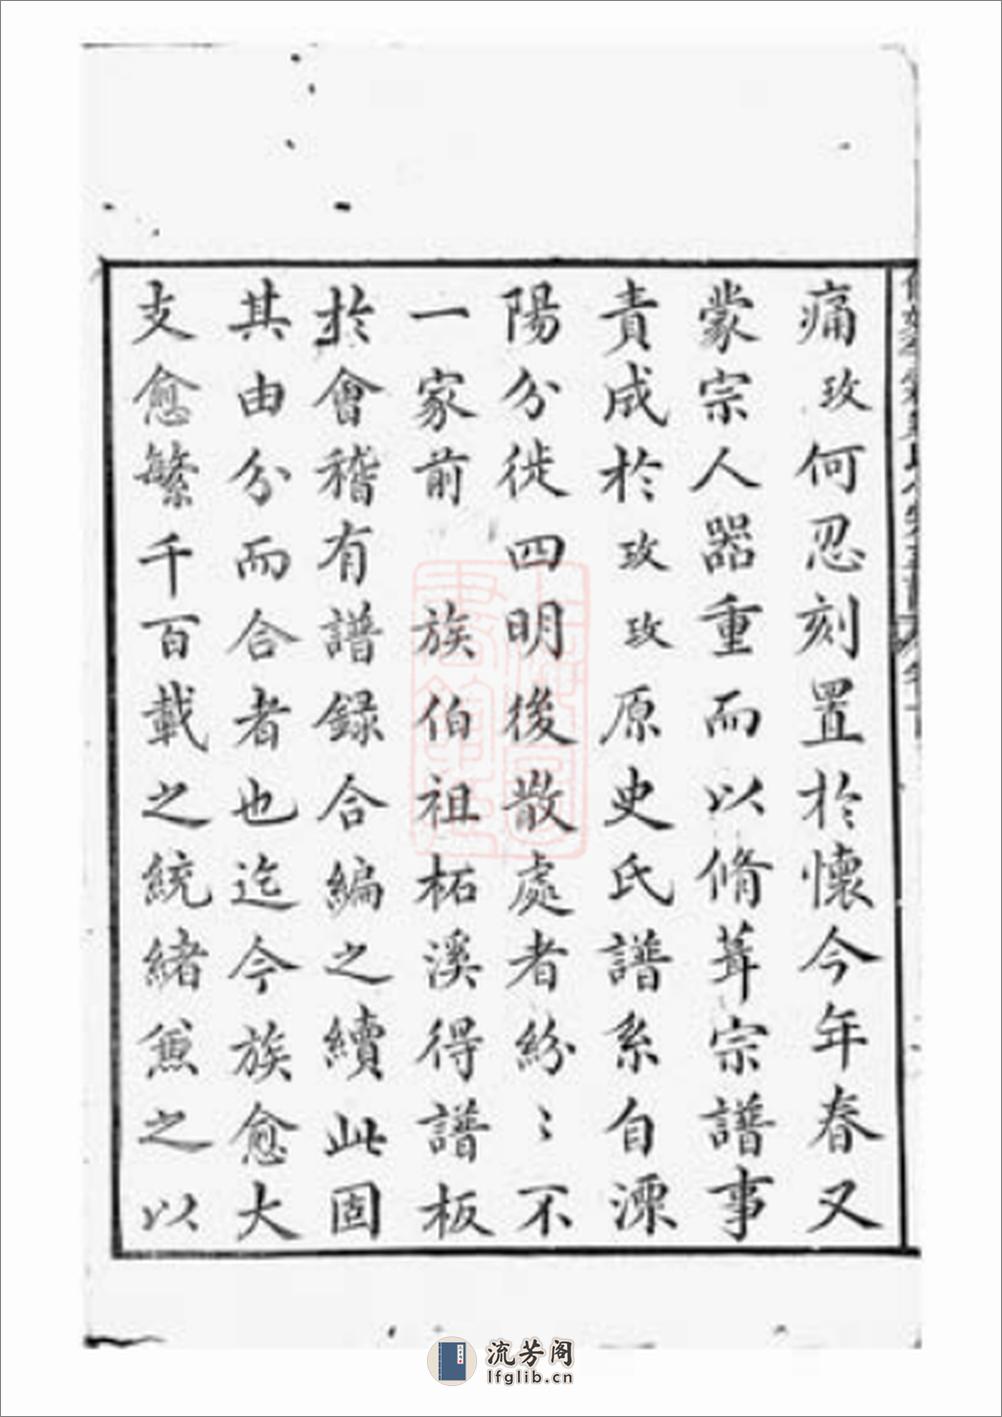 痛玫何忍刻置於懷今年春又
蒙宗人器重而以脩葺宗譜事
責成於玫玫原史氏譜系自溧
陽分徙四明後散處者紛〻不
一家前 族伯祖柘溪得譜板
於會稽有譜録合編之續此固
其由分而合者也迄今族愈大
支愈繁千百載之統緒㒷之以
流芳阁
lfglib.cn